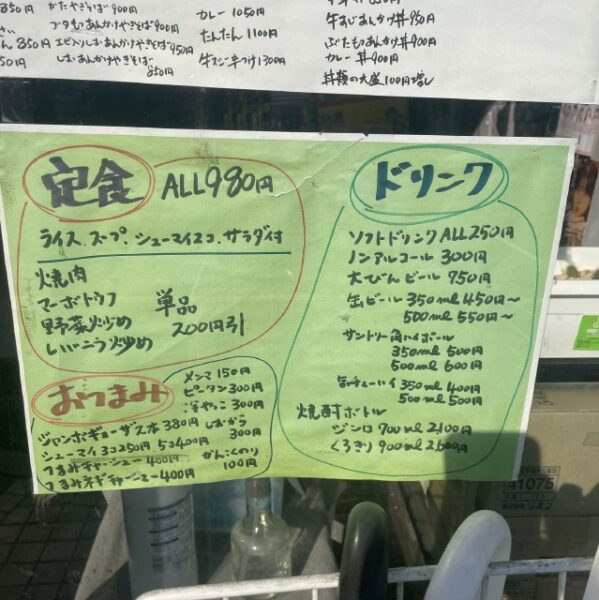 かたやきそば 900円
ブタもつあんかけやきそば 900円
エビ入りしおあんかけやきそば 950円
しおあんかけやきそば 850円
カレー 1050円
たんたん 1100円
牛スジ辛つけ 1300円
牛すじあんかけ丼 950円
ぶたもつあんかけ丼 900円
カレー丼 900円
丼類の大盛 100円増し
定食 ALL980円
ライス、スープ、シューマイ2コ、サラダ付
焼肉
マーボトウフ
野菜炒め
レバニラ炒め
単品
200円引
おつまみ
メンマ 150円
ピータン 300円
冷やっこ 300円
ジャンボギョーザ 3本 380円
しおから 300円
シューマイ 3コ250円 5コ400円
つまみチャーシュー 400円
がんこのり 100円
つまみネギチャーシュー 400円
ドリンク
ソフトドリンク ALL250円
ノンアルコール 300円
大びんビール 750円
缶ビール 350ml 450円〜
500ml 550円〜
サントリー角ハイボール
350ml 500円
500ml 600円
缶チューハイ 350ml 400円
500ml 500円
焼酎ボトル
ジンロ 700ml 2,100円
くろきり 900ml 2,600円
41075